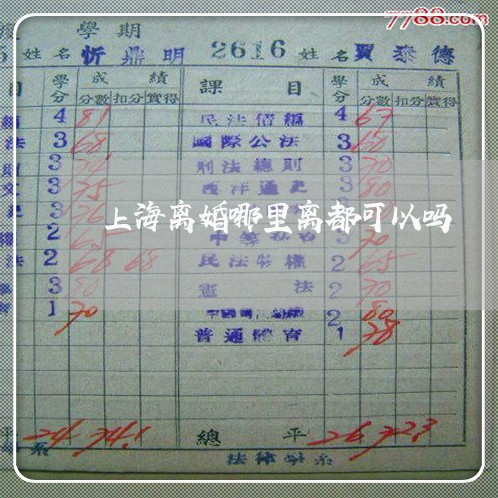 7788.com
學期
姓名 忻鼎明 2616 姓名 賈泰德
目 學分 成績 課目 學分 成績
分數 扣分 實得 分數 扣分 實得
4 81 民法債編 4 67
法 3 68 國際公法 3 60
3 刑法總則 3 70
3 75 西洋通史 3 80
3 76
上海离婚哪里离都可以吗
2 65 70
法 2 68 68 民法物權 2 65
3 80 憲法 2 70
1 70 2 80
普通體育 1 78
24 74.1 總平 26 72.3
系 法律學系